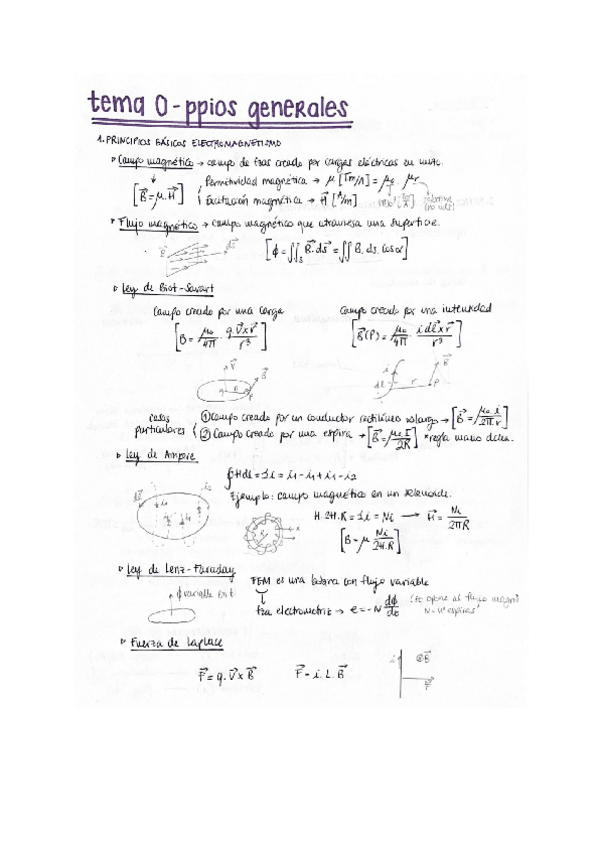 tema 0 - ppios generales
1. PRINCIPIOS BÁSICOS ELECTROMAGNETISMO
▹ Campo magnético → campo de fzas creado por cargas eléctricas en mvto.
[B⃗ = μ · H⃗] { Permitividad magnética → μ [Tm/A] = μ₀ · μr
Excitación magnética → H⃗ [A/m]
relativa
▹ Flujo magnético → campo magnético que atraviesa una superficie.
B⃗ ds⃗ [ϕ = ∬s B⃗ · ds⃗ = ∬ B · ds · cos α]
▹ Ley de Biot-Savart
Campo creado por una carga
[B⃗ = μ₀/4π · q · V⃗ x r⃗ / r³]
Campo creado por una intensidad
[B⃗(P) = μ₀/4π · i dl⃗ x r⃗ / r³]
V⃗ B⃗
i dl r P B⃗
casos particulares { ① Campo creado por un conductor rectilíneo → [B⃗ = μ₀ · i / 2π · r]
② Campo creado por una espira → [B⃗ = μ₀ · I / 2R] *regla mano dcha.
▹ Ley de Ampere
∮ H dl = Σi = i₁ - i₄ + i₃ - i₂
Ejemplo: campo magnético en un solenoide.
H · 2π · R = Σi = Ni → H⃗ = Ni / 2πR
[B = μ Ni / 2π · R]
▹ Ley de Lenz-Faraday
ϕ variable
FEM es una bobina con flujo variable
fza electromotriz → e = -N dϕ/dt
N = nº espiras
▹ Fuerza de Laplace
F⃗ = q · V⃗ x B⃗ F⃗ = i · L · B⃗
i ⊗B⃗
F⃗